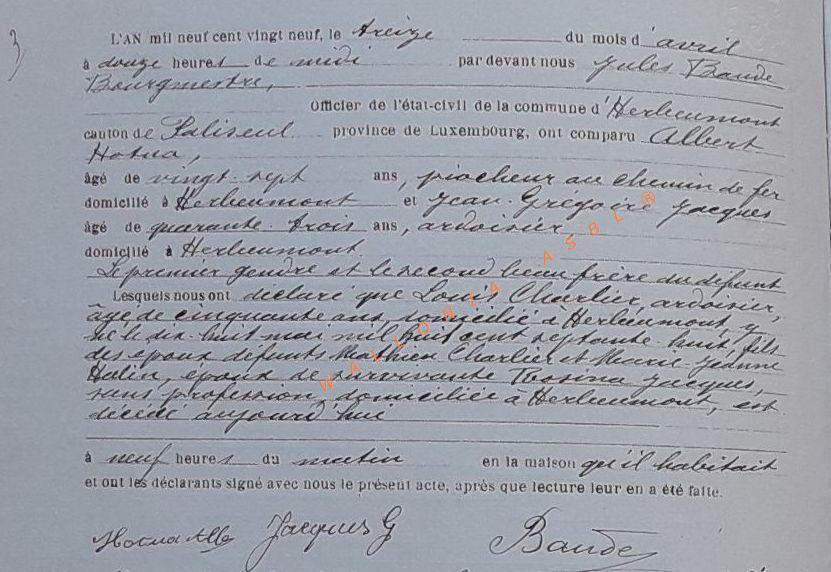 3
L'AN mil neuf cent vingt neuf, le treize du mois d'avril
à douze heures de midi par devant nous Jules Baude
Bourgmestre,
Officier de l'état-civil de la commune d'Herbeumont
canton de Paliseul province de Luxembourg, ont comparu Albert
Hotua,
âgé de vingt-sept ans, piocheur au chemin de fer
domicilié à Herbeumont et Jean-Gregoire Jacques
âgé de quarante-trois ans, ardoisier,
domicilié à Herbeumont.
Le premier gendre et le second beau frère du défunt
Lesquels nous ont déclaré que Louis Charlier, ardoisier,
âgé de cinquante ans, domicilié à Herbeumont, y
né le dix-huit mai mil huit cent septante huit, fils
des époux défunts Mathieu Charlier et Marie-Jeanne
Halin, époux de survivante Rosina Jacques,
sans profession, domiciliée à Herbeumont, est
décédé aujourd'hui
à neuf heures du matin en la maison qu'il habitait
et ont les déclarants signé avec nous le présent acte, après que lecture leur en a été faite.
Hotua Alb Jacques G Baude
WALLONIA ASBL ®